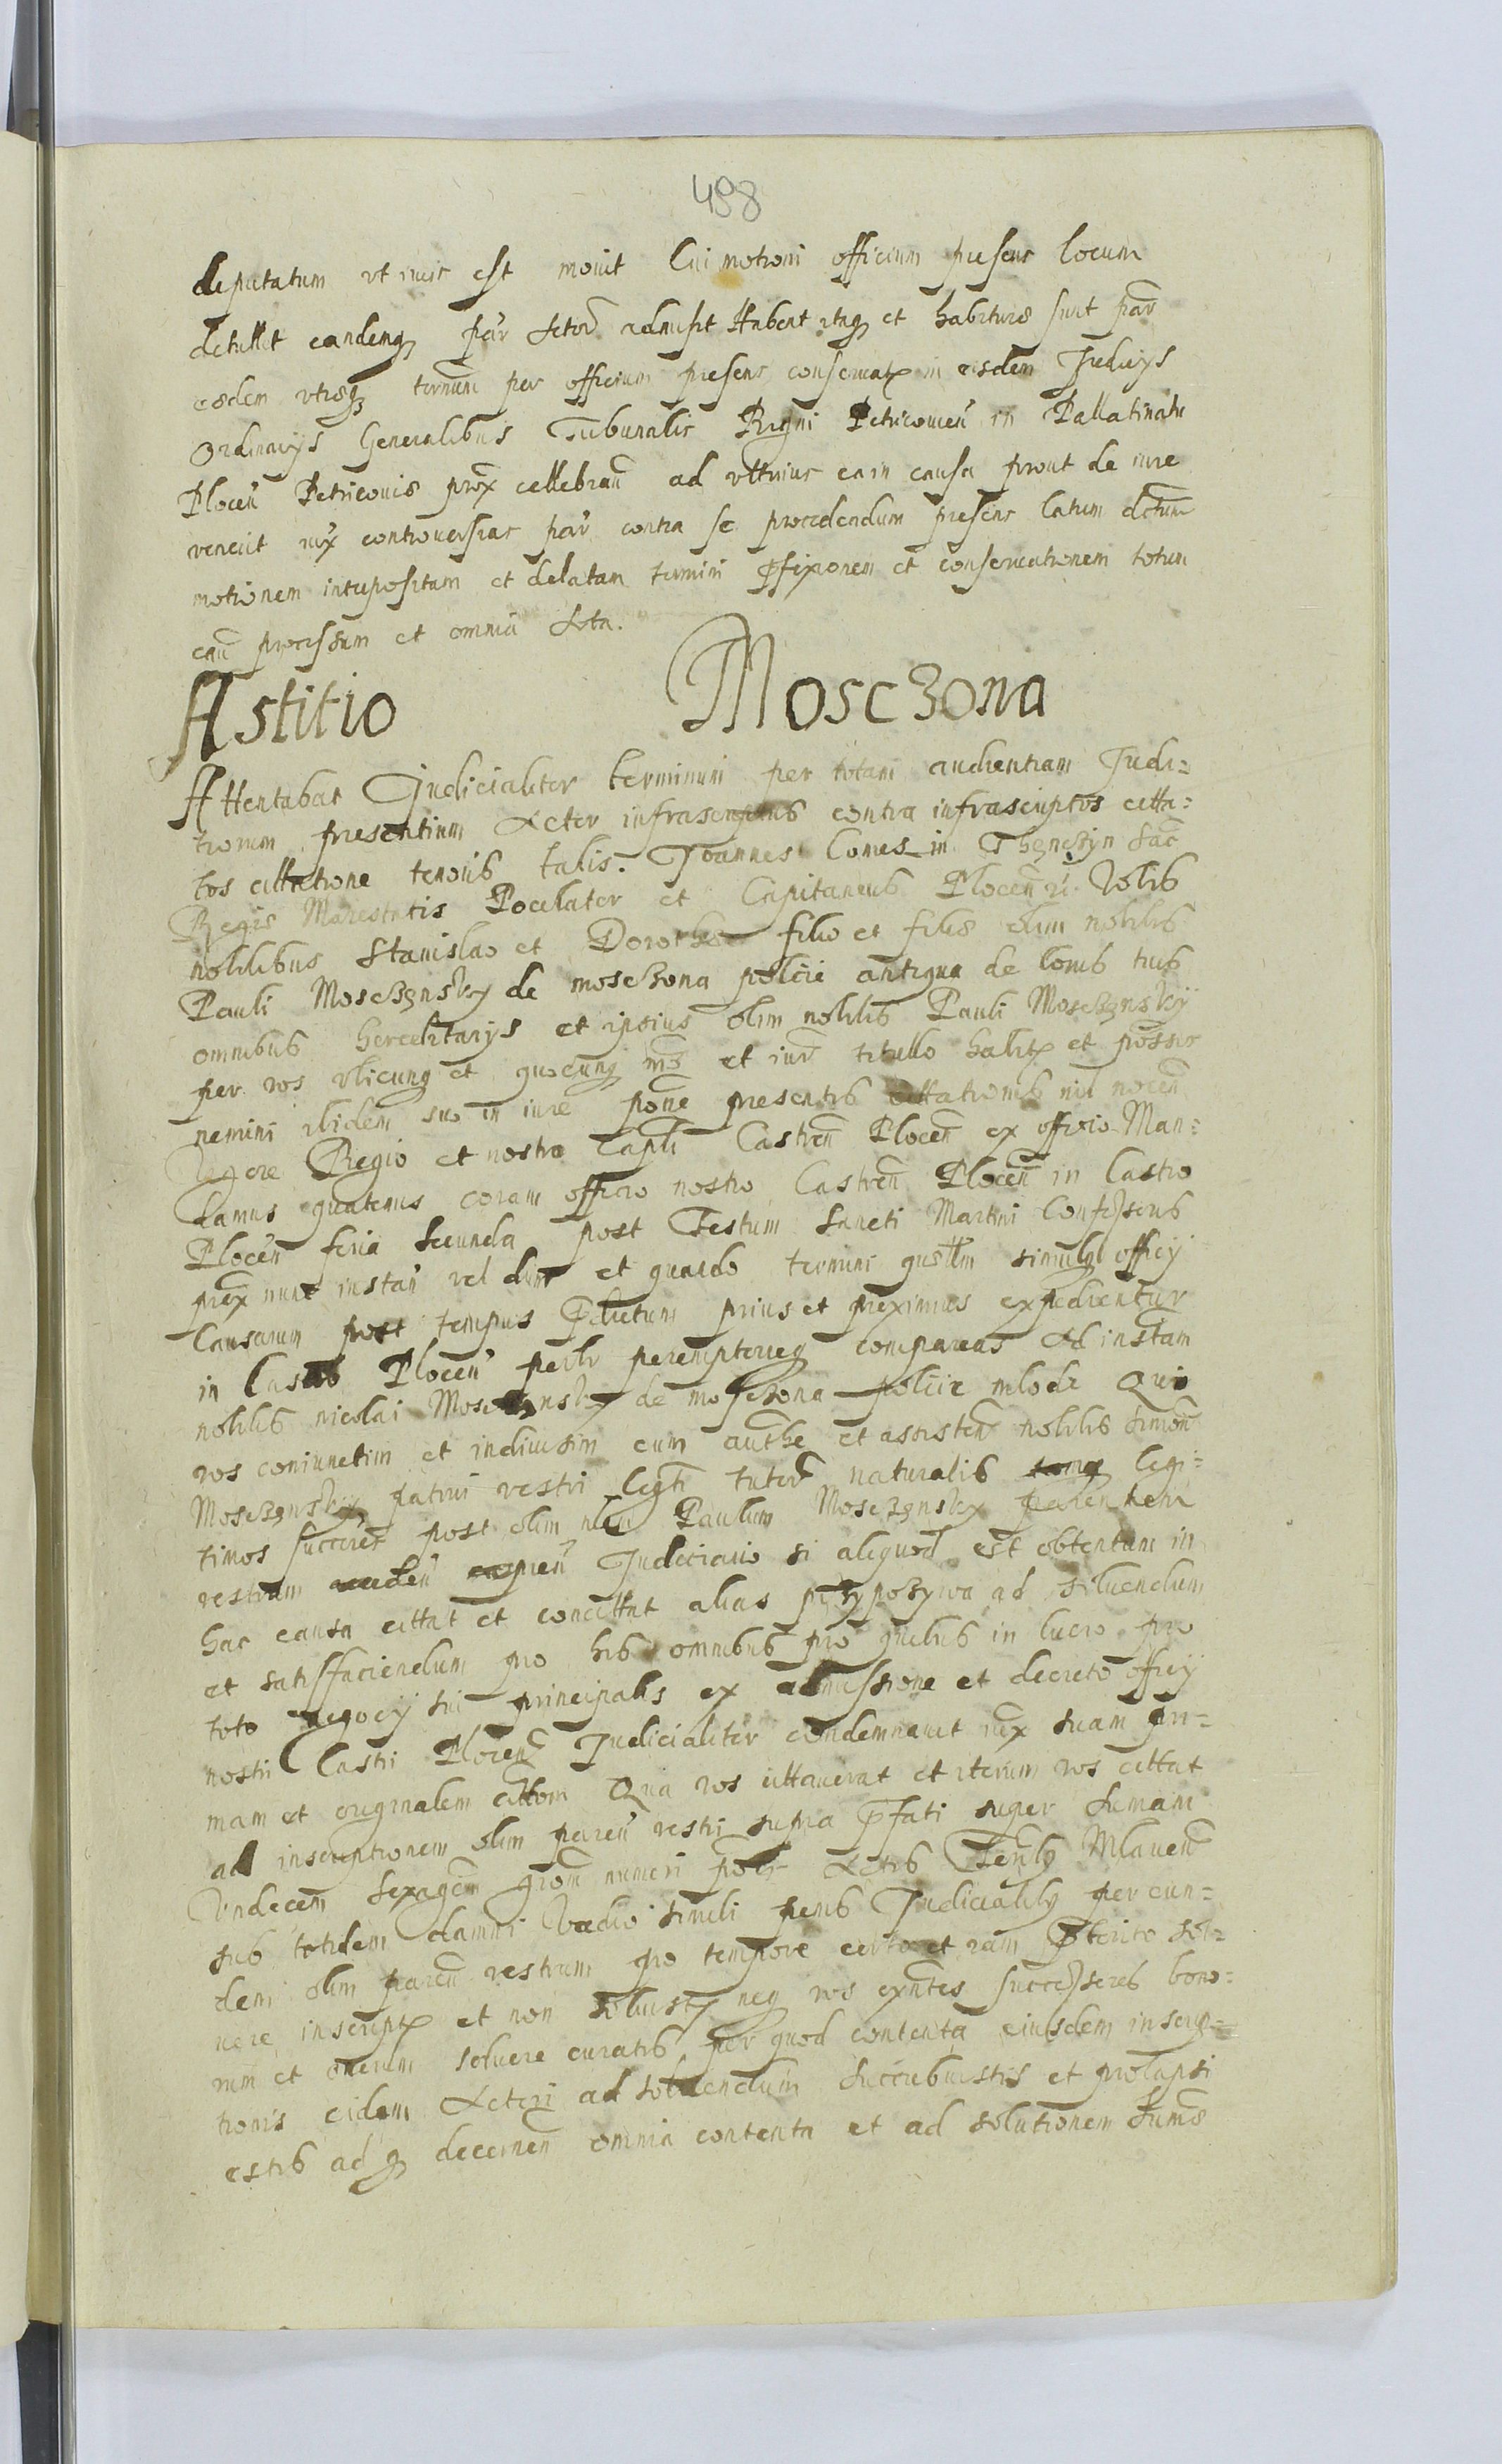 498
deputatum ut iuris est mouit Cui motioni officium presens locum
detulit eandemq par Actor admisit Habent itaq et habiture sunt par
eedem utreq terminum per officium presens conseruatx in eisdem Judicys
Ordinarys Generalibus Tribunalis Regni Petricouien in Pallatinatu
Plocen Petricouie prox cellebran ad ulterius ea in causa prout de iure
venerit iux controuersias par contra se procedendum presens latum decretum
motionem interpositam et delatam termini pfixionem et conseruationem totum
eam processum et omnia Acta.
Astitio Mosczona
Attentabat Judicialiter terminum per totam audientiam Judi=
tiorum presentium Actor infrascriptus contra infrascriptos citta=
tos cittatione tenoris talis. Joannes Comes in Thęnczyn Sac
Regie Maiestatis Pocilator et Capitaneus Plocen Vobis
nobilibus Stanislao et Dorothee filio et filie olim nobilis
Pauli Mosczęnsky de mosczona polcie antiqua de bonis tuis
omnibus hereditarys et ipsius olim nobilis Pauli Mosczęnsky
per vos ubicunq et quocunq et iure titullo habitx et possis
nemini ibidem suo in iure pone presentis cittationis nil nocen
Vigore Regio et nostro Capli Castren Plocen ex officio Man=
damus quatenus coram officio nostro Castren Plocen in Castro
Plocen feria secunda post Festum Sancti Martini Confessoris
prox nunc instan vel dum et quando termini simulq officy
Causarum post tempus pdictum prius et proximius expedientur
in Castro Plocen perlr peremptorieq compareas Ad instam
nobilis nicolai Mosczęnsky de mosczona polcie mlode Qui
vos coniunctim et indiuisim cum authe et assisten nobilis Simon
Mosczęnsky patrui vestri tutor naturalis legi=
timos succes post olim Paulum Mosczęnsky parentem
vestrum Judiciario si aliquod est obtentum in
hac causa cittat et concittat alias przypozywa ad soluendum
et satisfaciendum pro his omnibus pro quibus in lucro pro
toto negocy sui principalis ex admissione et decreto officy
nostri Castri Plocen Judicialiter condemnauit iux suam pri=
mam et originalem cittom Qua vos cittauerat et iterum vos cittat
ad inscriptionem olim paren vestri supra pfati super Sumam
Vndecem sexagem numeri Actis Mlauen
sub totidem damni Vadio simili penis Judicialibq per eun=
dem olim paren vestrum pro tempore certo et iam pterito sol=
uere inscriptx et non solutx neq vos exntes successores bono=
rum et onerum soluere curatis per quod contenta eiusdem inscrip=
tionis eidem Actori ad soluendum succubuistis et prolapsi
estis ad decernen omnia contenta et ad solutionem Sume